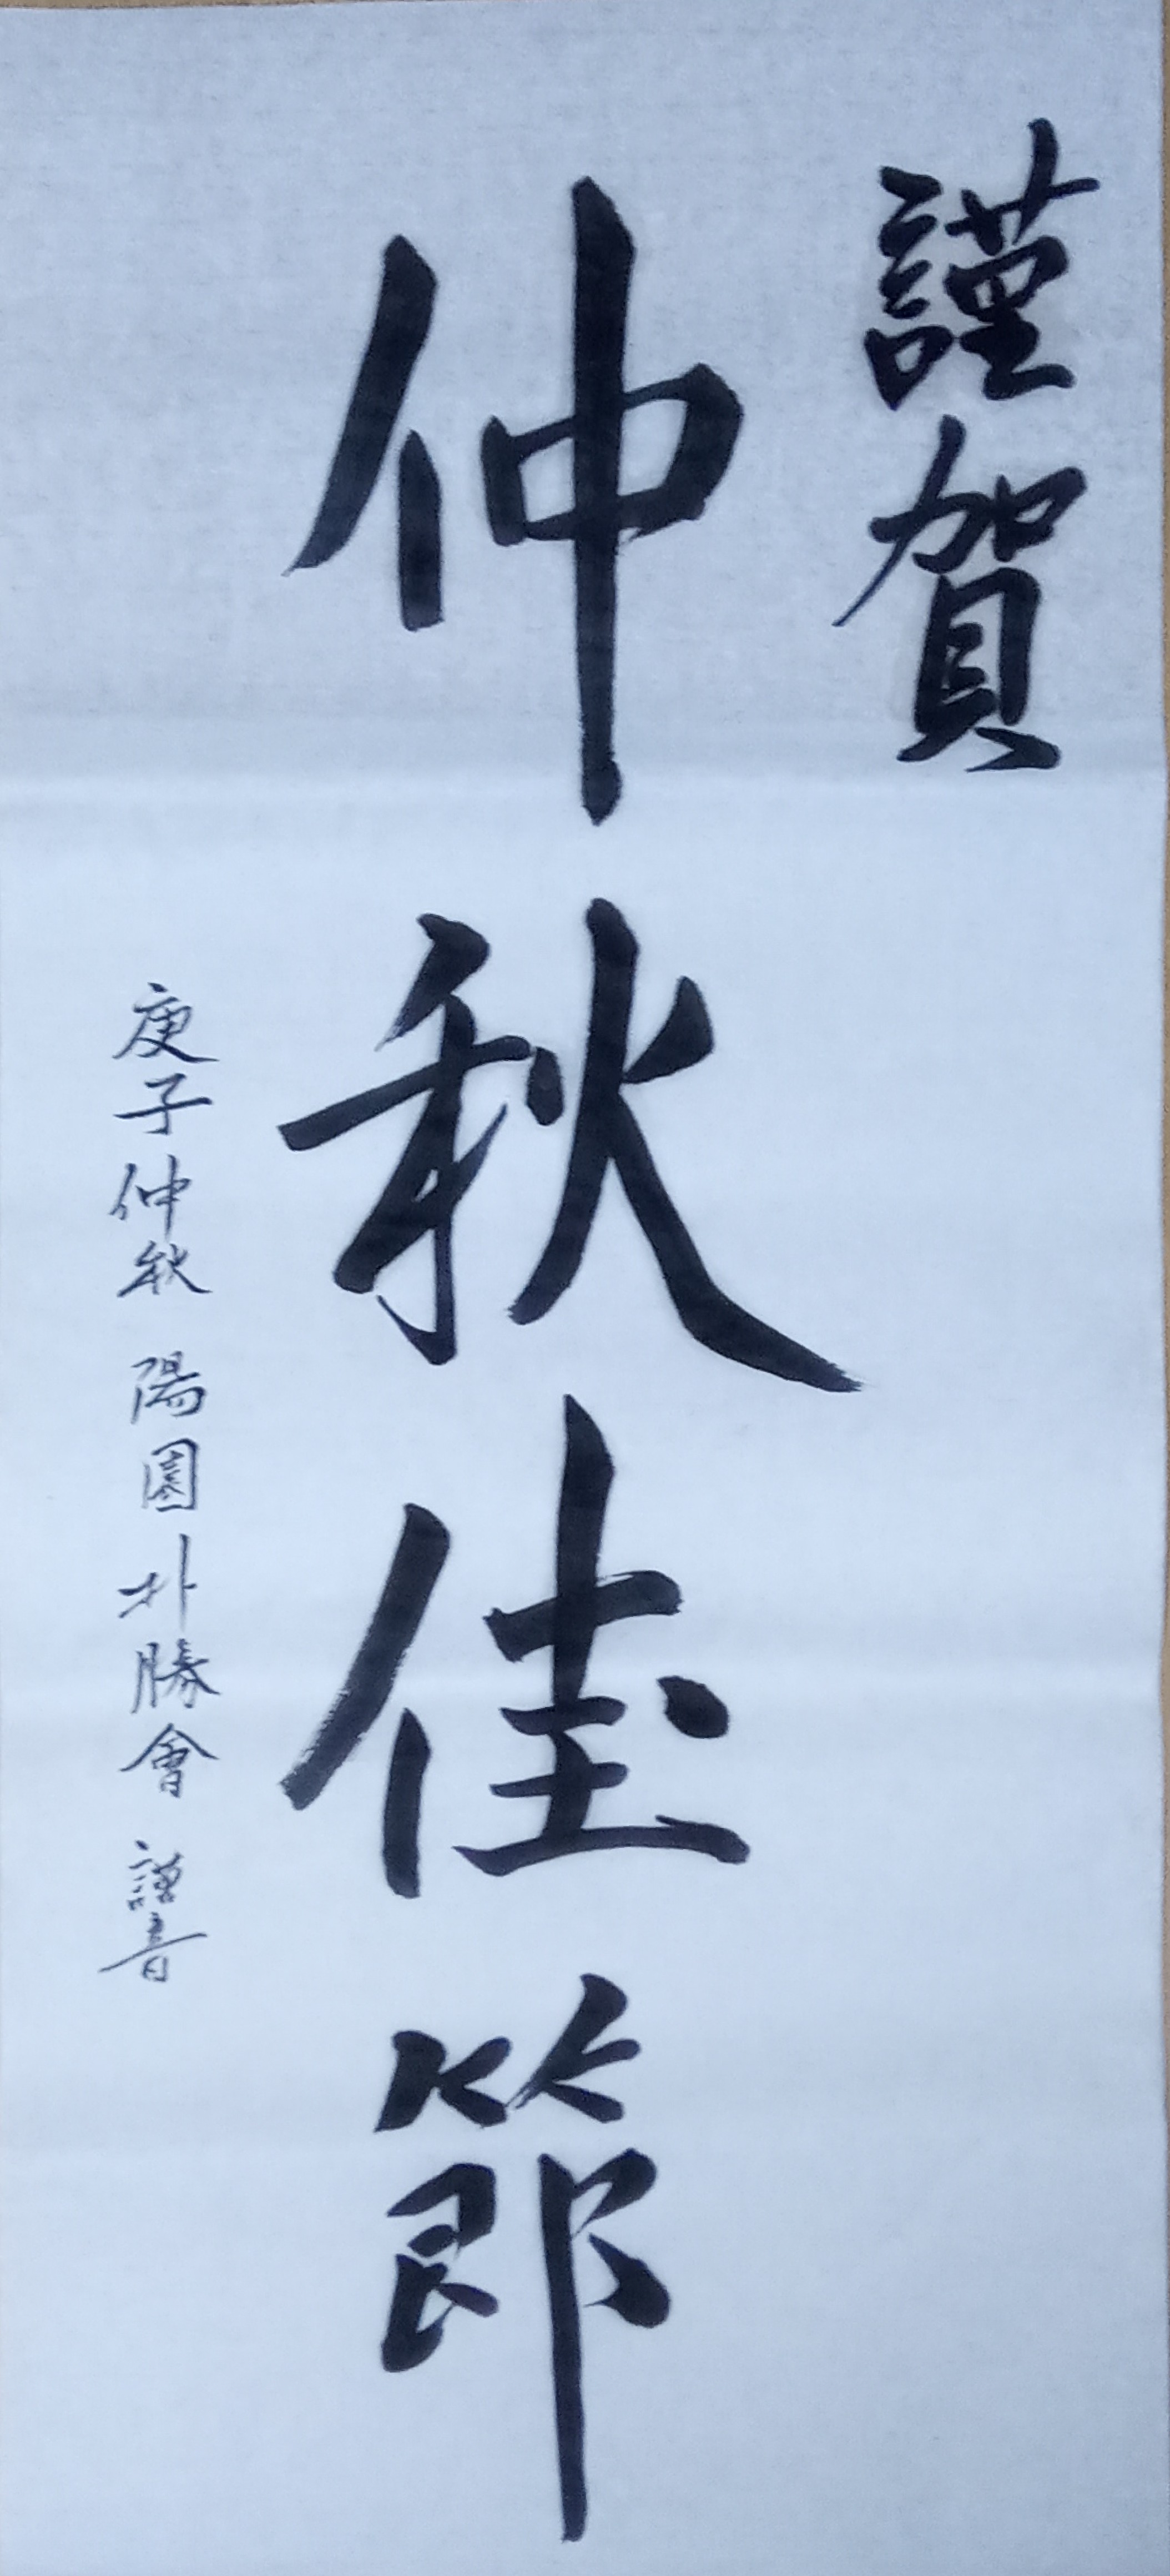 謹賀
仲秋佳節
庚子仲秋 陽園 朴勝會 謹書